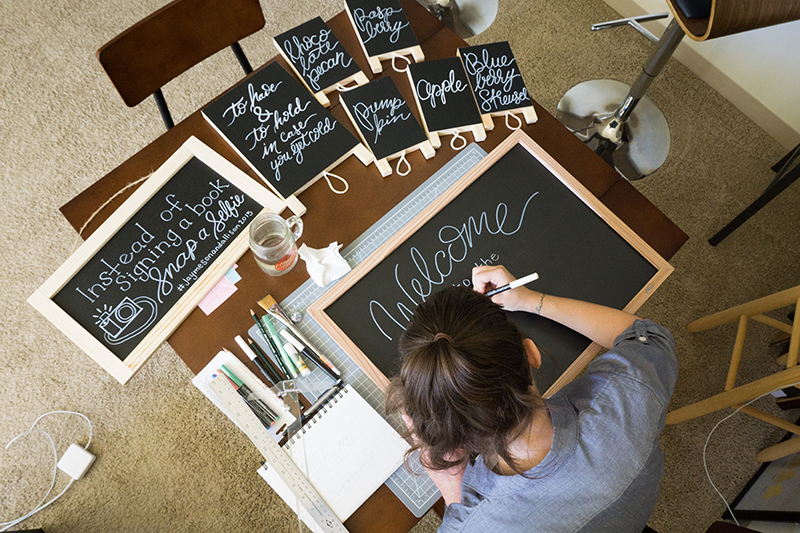 Choco
late
pecan
Rasp
berry
to have
&
to hold
in case
you get cold
Pump
kin
Apple
Blue
berry
Streusel
Instead of
signing a book
Snap a Selfie
#jaymesonandallison2015
Welcome
to the